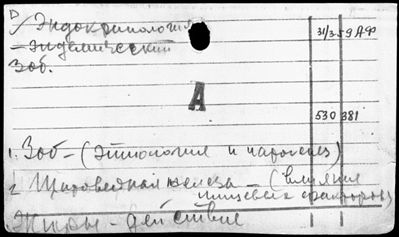 Эндокринология 31/3.59 АФ
– эндемический
Зоб.
А
530 381
1. Зоб – (этиология и патогенез)
2. Щитовидная железа – (влияния
пищевых факторов)
Жиры – действие